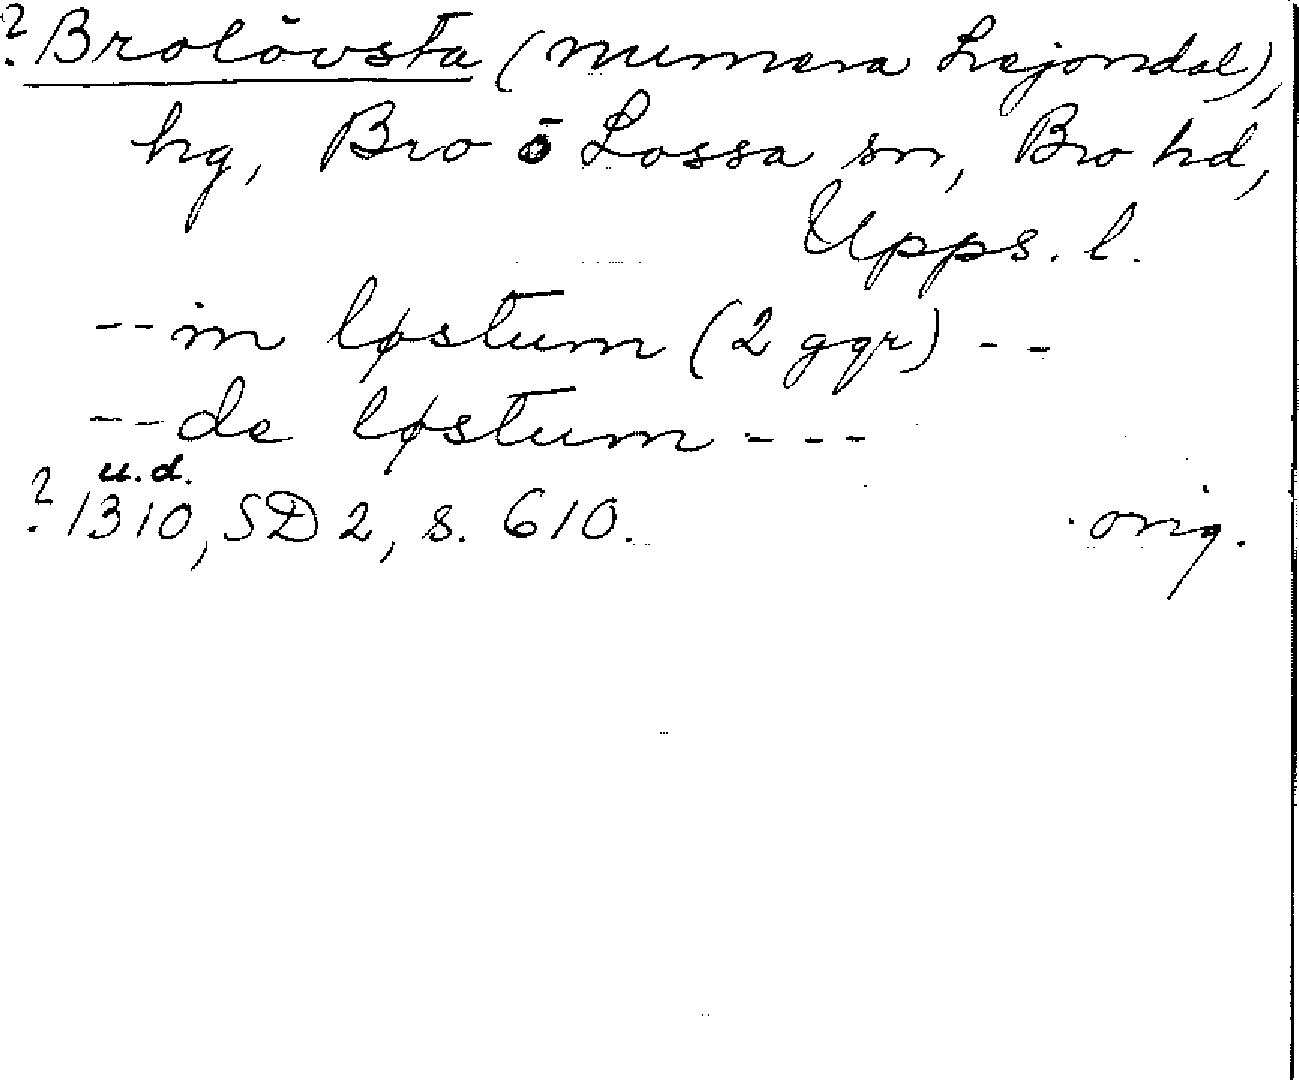 ? Brolövsta (numera Lejondal),
hg, Bro o Lossa sn, Bro hd,
Upps. l.
-- in løstum (2 ggr) --
-- de løstum ---
u.d.
? 1310, SD 2, s. 610. orig.